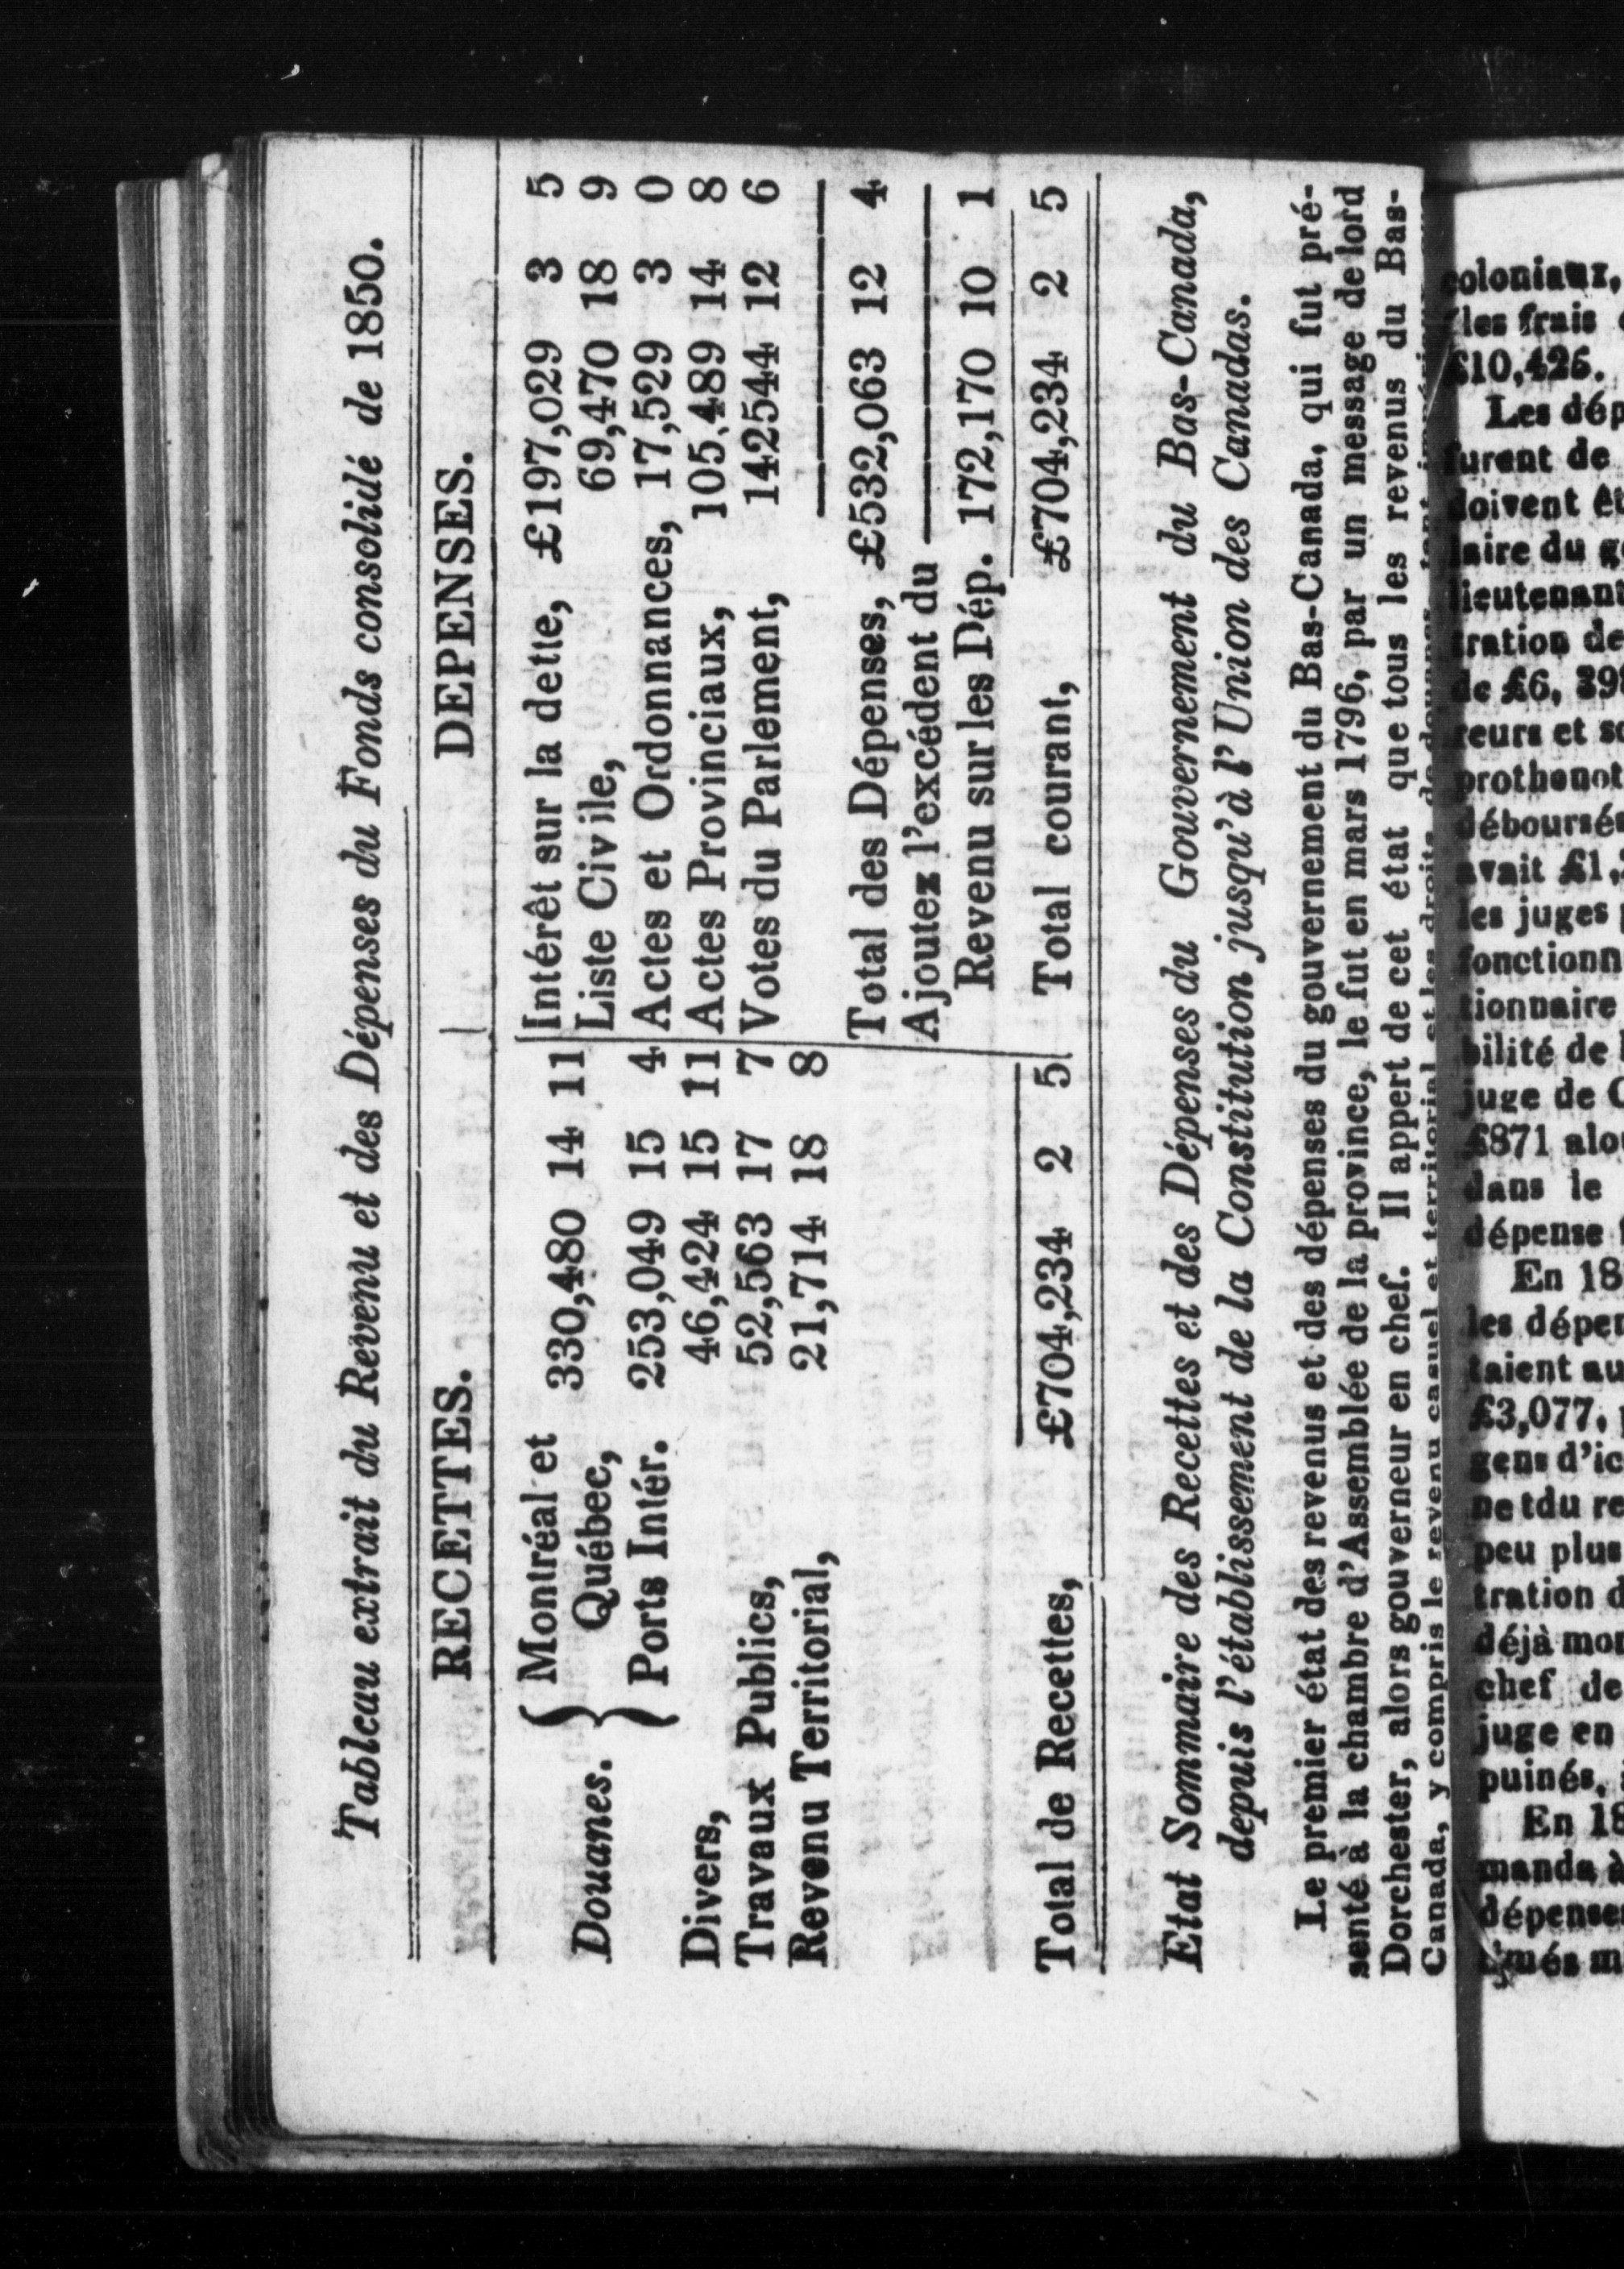 Tableau extrait du Revenu et des Dépenses du Fonds consolidé de 1850.
RECETTES.
Montréal et
Québec, 330,480 14 11
Douanes.
Ports Intér. 253,049 15 4
Divers, 46,424 15 11
Travaux Publics, 52,563 17 7
Revenu Territorial, 21,714 18 8
Total de Recettes, £704,234 2 5
DEPENSES.
Intérêt sur la dette, £197,029 3 5
Liste Civile, 69,470 18 9
Actes et Ordonnances, 17,529 3 0
Actes Provinciaux, 105,489 14 8
Votes du Parlement, 142544 12 6
Total des Dépenses, £532,063 12 4
Ajoutez l'excédent du
Revenu sur les Dép. 172,170 10 1
Total courant, £704,234 2 5
Etat Sommaire des Recettes et des Dépenses du Gouvernement du Bas-Canada,
depuis l'établissement de la Constitution jusqu'à l'Union des Canadas.
Le premier état des revenus et des dépenses du gouvernement du Bas-Canada, qui fut pré-
senté à la chambre d'Assemblée de la province, le fut en mars 1796, par un message de lord
Dorchester, alors gouverneur en chef. Il appert de cet état que tous les revenus du Bas-
Canada, y compris le revenu casuel et territorial et les droits de
coloniaux,
les frais
£10,426.
Les
furent de
doivent
laire du
lieutenant
tration de
de £6,
reurs et
déboursés
avait
les juges
tionnaire
bilité de
juge de
£871
dans le
dépense
En
les
taient au
£3,077,
gens
peu plus
tration
déjà
chef de
juge en
puinés,
En
manda à